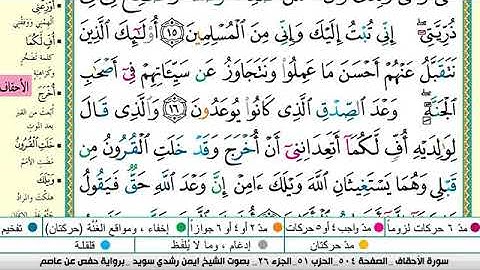 ذُرِّيَّتِيٓ إِنِّي تُبۡتُ إِلَيۡكَ وَإِنِّي مِنَ ٱلۡمُسۡلِمِينَ ١٥ أُوْلَٰٓئِكَ ٱلَّذِينَ
نَتَقَبَّلُ عَنۡهُمۡ أَحۡسَنَ مَا عَمِلُواْ وَنَتَجَاوَزُ عَن سَيِّـَٔاتِهِمۡ فِيٓ أَصۡحَٰبِ
ٱلۡجَنَّةِۖ وَعۡدَ ٱلصِّدۡقِ ٱلَّذِي كَانُواْ يُوعَدُونَ ١٦ وَٱلَّذِي قَالَ
لِوَٰلِدَيۡهِ أُفّٖ لَّكُمَآ أَتَعِدَانِنِيٓ أَنۡ أُخۡرَجَ وَقَدۡ خَلَتِ ٱلۡقُرُونُ مِن
قَبۡلِي وَهُمَا يَسۡتَغِيثَانِ ٱللَّهَ وَيۡلَكَ ءَامِنۡ إِنَّ وَعۡدَ ٱللَّهِ حَقّٞ فَيَقُولُ
أَوْزِعْنِي
ألهمني ووفقني
أُفٍّ لَّكُمَا
كلمة تضجر
وكراهية
الأحقاف
أُخْرَجَ
أبعث من القبر
بعد الموت
خَلَتِ الْقُرُونُ
مضت الأمم
وَيْلَكَ
هلكت والمراد
مدّ ٦ حركات لزوماً
مدّ واجب ٤ أو ٥ حركات
مدّ ٢ أو ٤ أو ٦ جوازاً
إخفاء ، ومواقع الغُنَّة (حركتان)
تفخيم
مدّ حركتان
إدغام ، وما لا يُلفَظ
قلقلة
سورة الأحقاف . الصفحة ٥٠٤ . الحزب ٥١ . الجزء ٢٦ . بصوت الشيخ ايمن رشدي سويد . برواية حفص عن عاصم